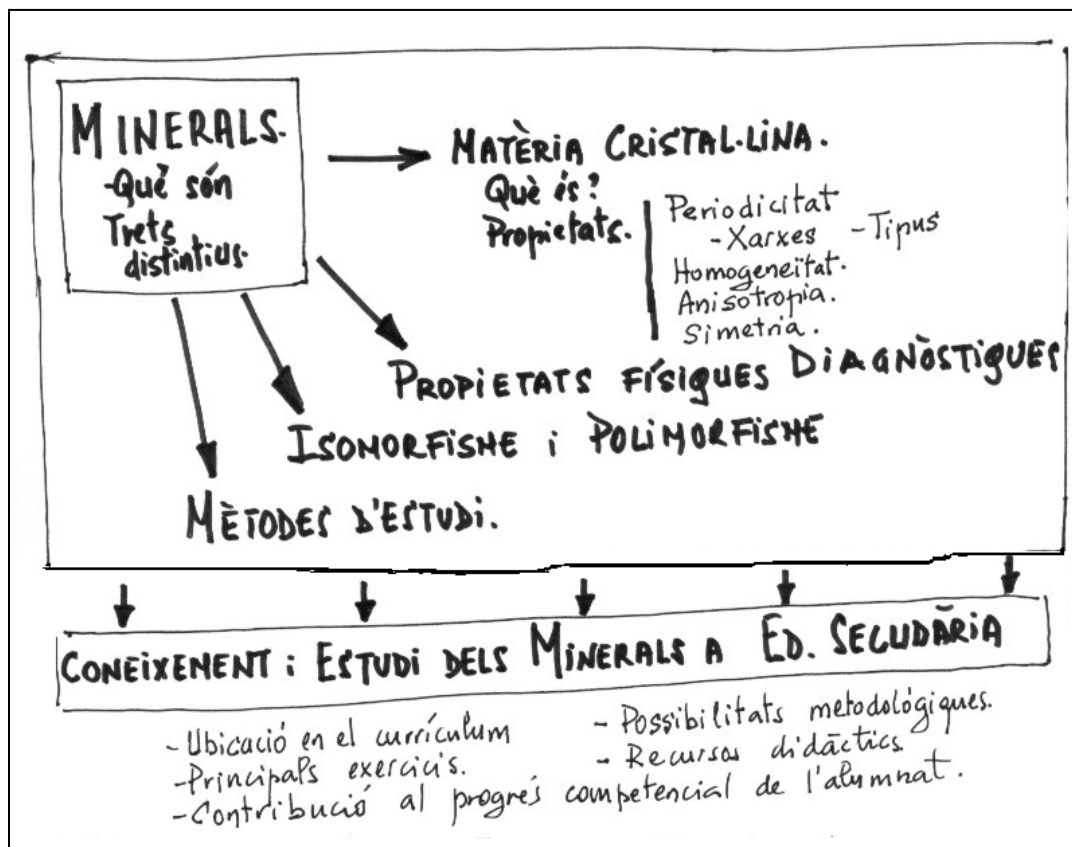 MINERALS.
-Què són
Trets
distintius.
MATÈRIA CRISTAL·LINA.
Què és?
Propietats.
Periodicitat
-Xarxes -Tipus
Homogeneïtat.
Anisotropia.
Simetria.
PROPIETATS FÍSIQUES DIAGNÒSTIQUES
ISOMORFISME i POLIMORFISME
MÈTODES D'ESTUDI.
CONEIXEMENT i ESTUDI DELS MINERALS A ED. SECUDÀRIA
-Ubicació en el currículum
-Principals exercicis.
-Contribució al progrés competencial de l'alumnat.
-Possibilitats metodológiques.
-Recursos didàctics